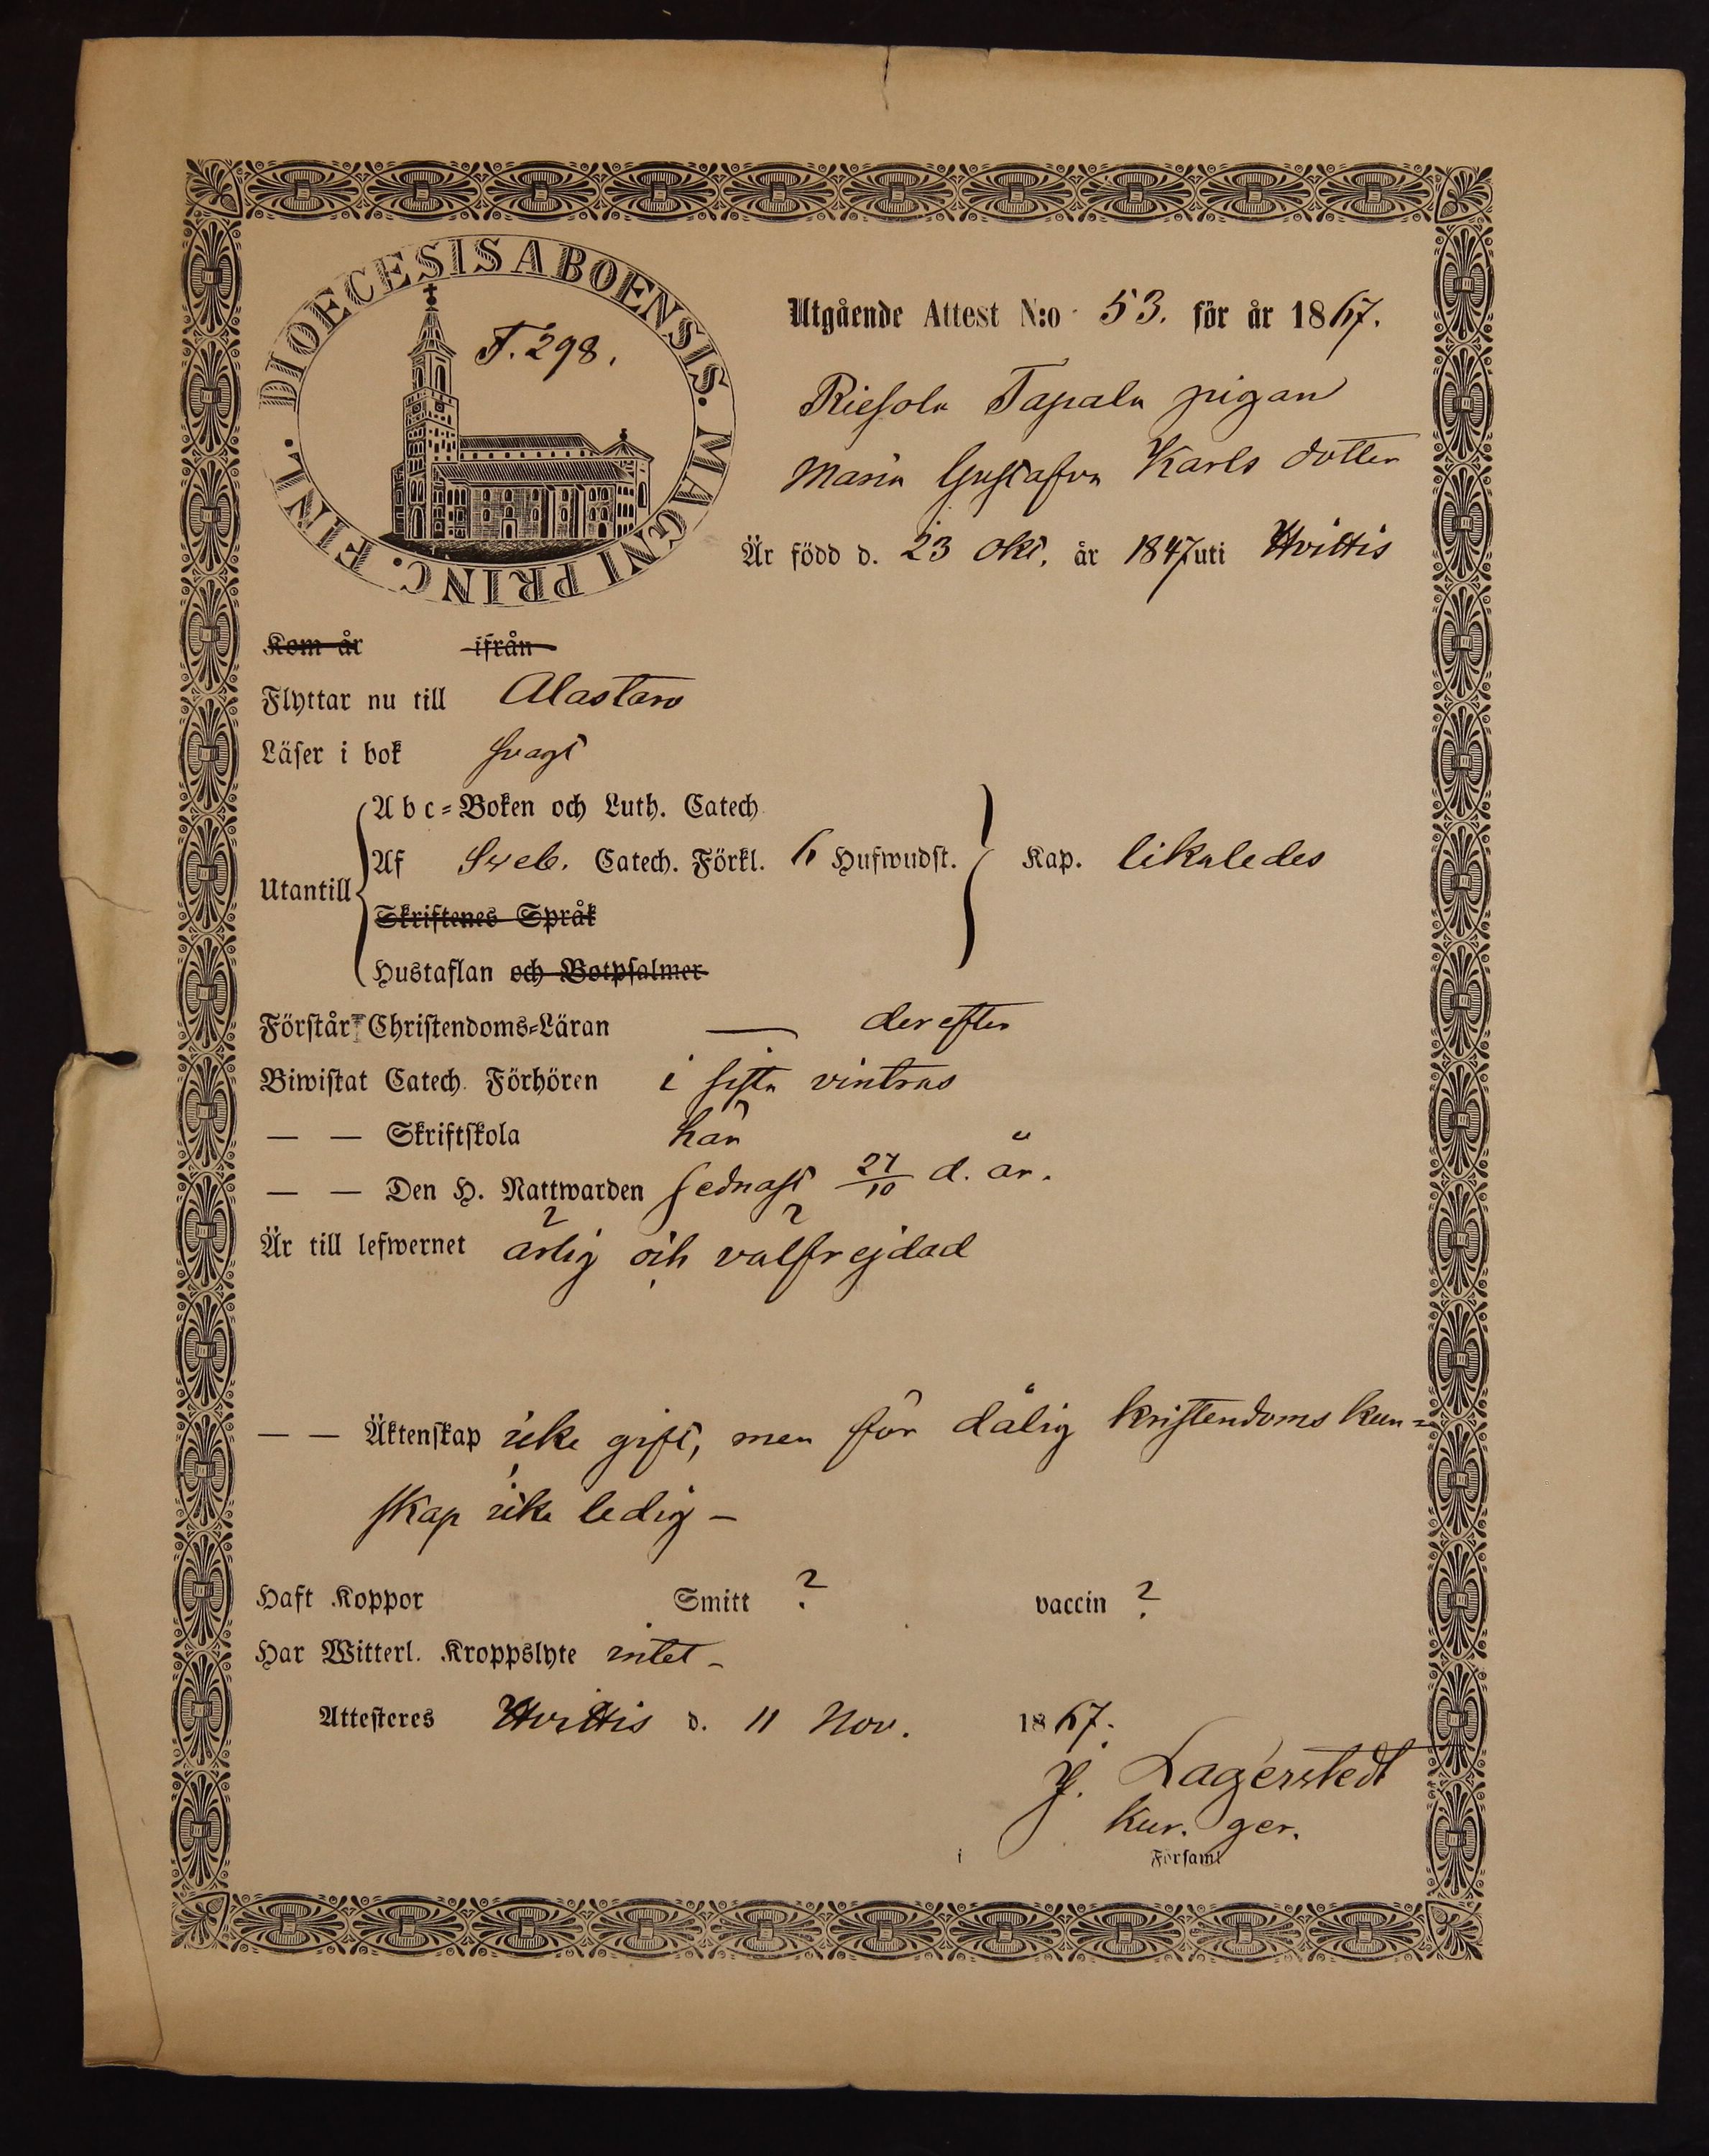 DIOECESIS ABOENSIS. MAGNI PRINC. FINL.
F. 298.
Utgående Attest N:o 53. för år 1867.
Riesola Tapala pigan
Maria Gustafva Karls dotter
Är född d. 23 Okt. år 1847 uti Hvittis
Kom år ifrån
Flyttar nu till Alastaro
Läser i bok svagt
Utantill
Abc-Boken och Luth. Catech.
Af Sveb. Catech. Förkl. 6 Hufwudst. Kap. likaledes
Skriftenes Språk
Hustaflan och Botpsalmer
Förstår Christendoms-Läran — derefter
Biwistat Catech. Förhören i sista vintras
— — Skriftskola här
— — Den H. Nattwarden sednast 27/10 d. år.
Är till lefwernet ärlig och välfrejdad
— — Äktenskap icke gift, men för dålig kristendoms kun-
skap icke ledig –
Haft Koppor Smitt ? vaccin ?
Har Witterl. Kroppslyte intet –
Attesteres Hvittis d. 11 Nov. 1867.
J. Lagerstedt
Kur. ger.
i Församl